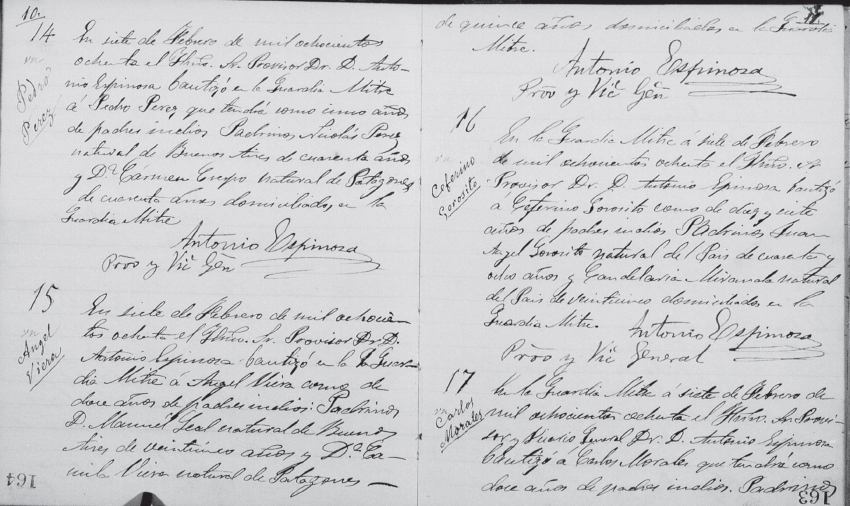 10.
14
Pedro
Perez
En siete de Febrero de mil ochocientos
ochenta el Ilmo. Sr. Provisor Dr. D. Anto-
nio Espinosa bautizó en la Guardia Mitre
á Pedro Perez que tendrá como cinco años
de padres indios Padrinos Nicolás Perez
natural de Buenos Aires de cuarenta años
y Dª Carmen Crespo natural de Patagones
de cuarenta años domiciliados en la
Guardia Mitre
Antonio Espinosa
Prov y Vic Gen
15
Angel
Viera
En siete de Febrero de mil ochocien-
tos ochenta el Ilmo. Sr. Provisor Dr. D.
Antonio Espinosa bautizó en la Guar-
dia Mitre á Angel Viera como de
doce años de padres indios: Padrinos
D. Manuel Leal natural de Buenos
Aires de veinticinco años y Dª Ca-
mila Viera natural de Patagones
164
de quince años domiciliados en la Guardia
Mitre.
Antonio Espinosa
Prov y Vic Gen
16
Ceferino
Gorosito
En la Guardia Mitre á siete de Febrero
de mil ochocientos ochenta el Ilmo. Sr.
Provisor Dr. D. Antonio Espinosa bautizó
a Ceferino Gorosito como de diez y siete
años de padres indios Padrinos Juan
Angel Gorosito natural del Pais de cuarenta y
ocho años y Candelaria Miranda natural
del Pais de veinticinco domiciliados en la
Guardia Mitre.
Antonio Espinosa
Provr y Vic General
17
Carlos
Morales
En la Guardia Mitre á siete de Febrero de
mil ochocientos ochenta el Ilmo. Sr. Provi-
sor y Vicario General Dr. D. Antonio Espinosa
bautizó á Carlos Morales que tendrá como
doce años de padres indios. Padrinos
163